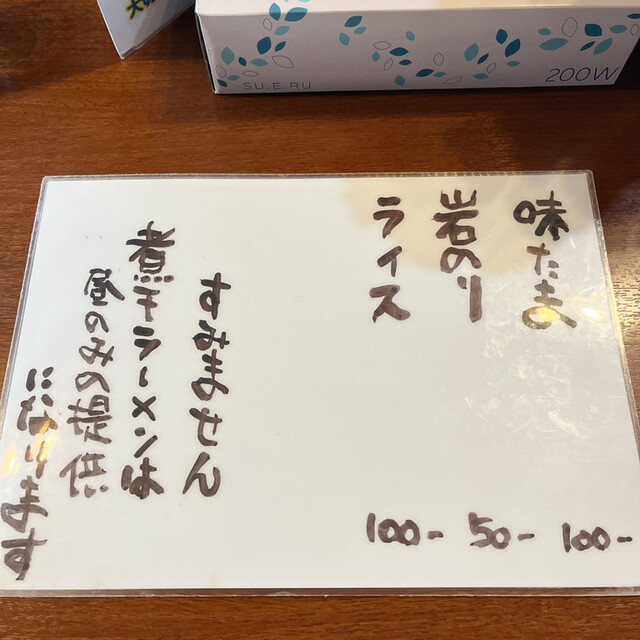 味たま 100-
岩のり 50-
ライス 100-
すみません
煮干ラーメンは
昼のみの提供
になります
SU.E.RU
200W